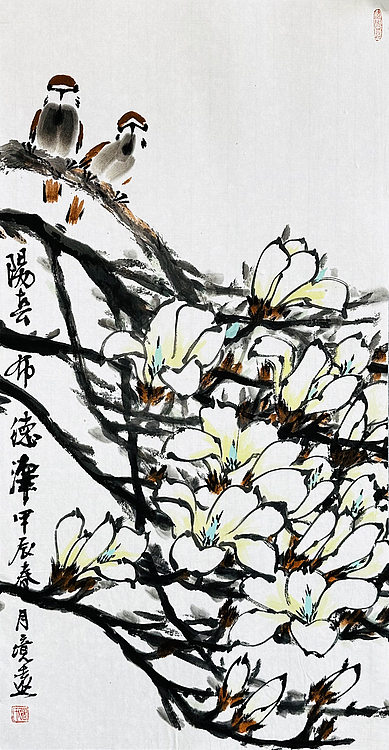 陽春布德澤甲辰春月